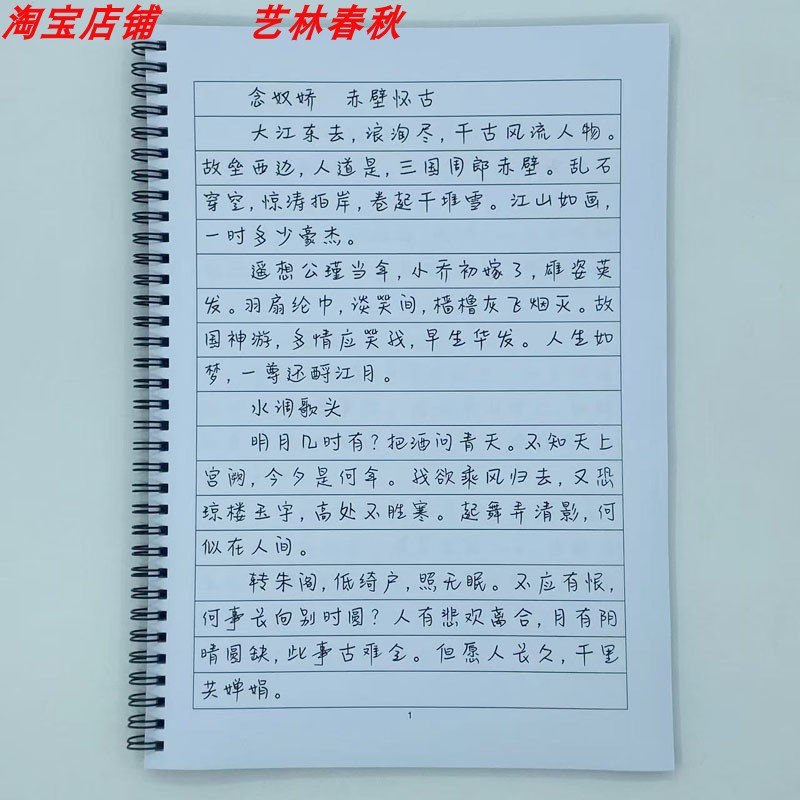 淘宝店铺 艺林春秋
念奴娇 赤壁怀古
大江东去,浪淘尽,千古风流人物。
故垒西边,人道是,三国周郎赤壁。乱石
穿空,惊涛拍岸,卷起千堆雪。江山如画,
一时多少豪杰。
遥想公瑾当年,小乔初嫁了,雄姿英
发。羽扇纶巾,谈笑间,樯橹灰飞烟灭。故
国神游,多情应笑我,早生华发。人生如
梦,一尊还酹江月。
水调歌头
明月几时有?把酒问青天。不知天上
宫阙,今夕是何年。我欲乘风归去,又恐
琼楼玉宇,高处不胜寒。起舞弄清影,何
似在人间。
转朱阁,低绮户,照无眠。不应有恨,
何事长向别时圆?人有悲欢离合,月有阴
晴圆缺,此事古难全。但愿人长久,千里
共婵娟。
1